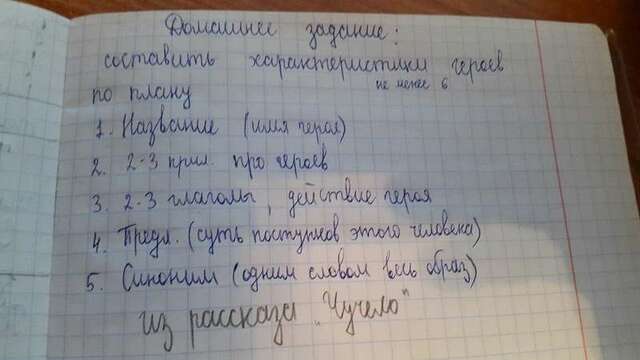 Домашнее задание:
составить характеристики героев
не менее 6
по плану
1. Название (имя героя)
2. 2-3 прил. про героев
3. 2-3 глаголы, действие героя
4. Предл. (суть поступков этого человека)
5. Синоним (одним словом весь образ)
из рассказа "Чучело"